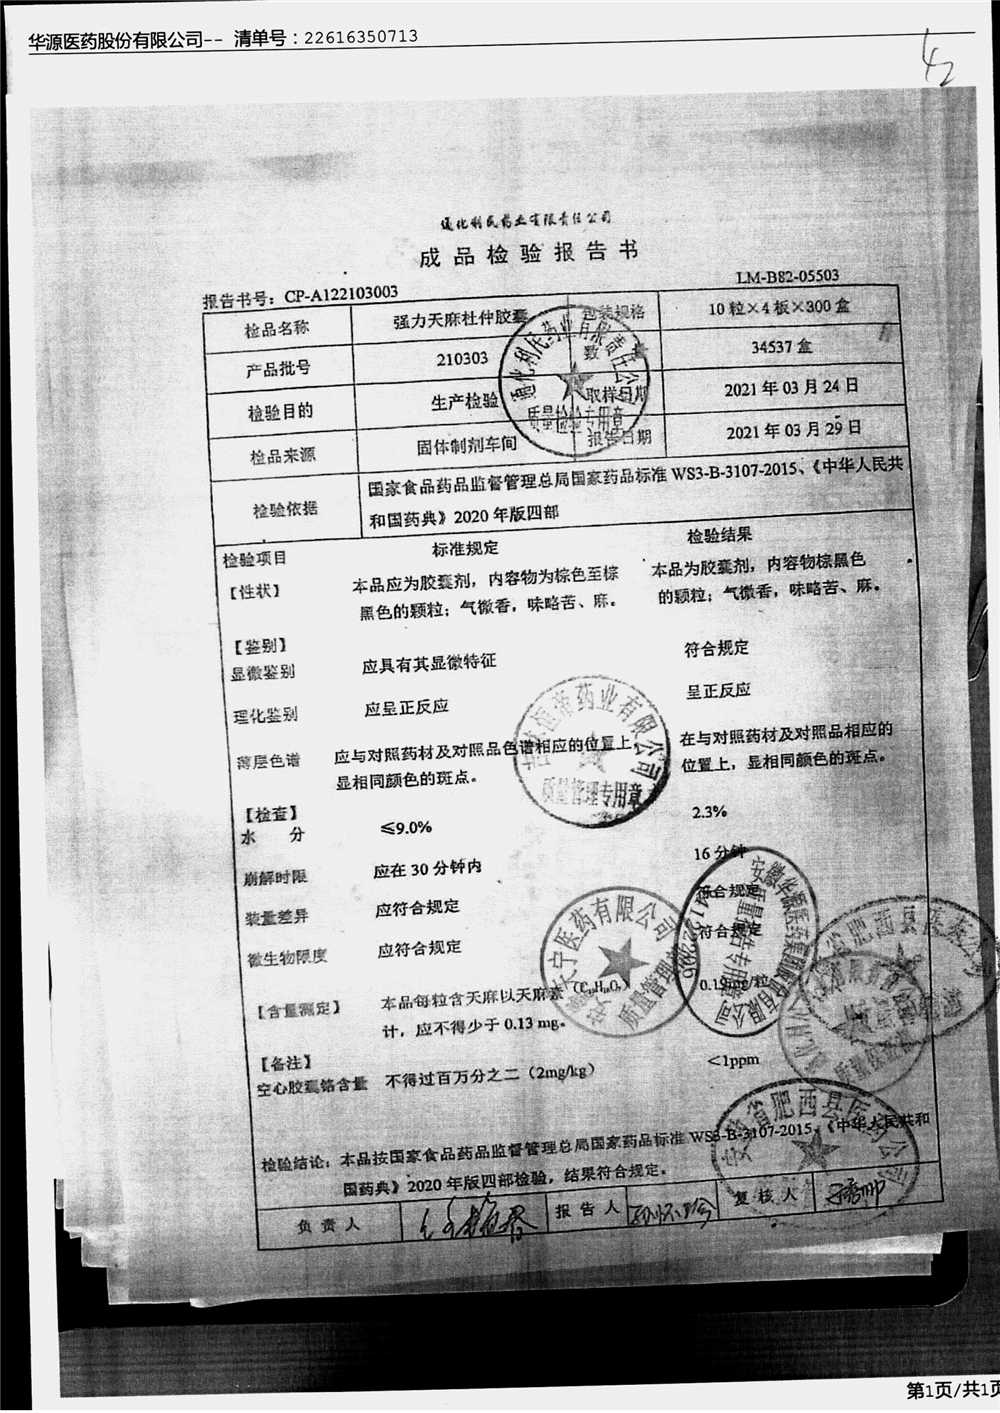 华源医药股份有限公司-- 清单号：22616350713
42
通化利民药业有限责任公司
成品检验报告书
报告书号：CP-A122103003
LM-B82-05503
检品名称 强力天麻杜仲胶囊 包装规格 10粒×4板×300盒
产品批号 210303 数 34537盒
检验目的 生产检验 取样日期 2021年03月24日
检品来源 固体制剂车间 报告日期 2021年03月29日
检验依据 国家食品药品监督管理总局国家药品标准 WS3-B-3107-2015、《中华人民共
和国药典》2020年版四部
检验项目 标准规定 检验结果
【性状】 本品应为胶囊剂，内容物为棕色至棕 本品为胶囊剂，内容物棕黑色
黑色的颗粒；气微香，味略苦、麻。 的颗粒；气微香，味略苦、麻。
【鉴别】
显微鉴别 应具有其显微特征 符合规定
理化鉴别 应呈正反应 呈正反应
薄层色谱 应与对照药材及对照品色谱相应的位置上， 在与对照药材及对照品相应的
显相同颜色的斑点。 位置上，显相同颜色的斑点。
【检查】
水 分 ≤9.0% 2.3%
崩解时限 应在30分钟内 16分钟
装量差异 应符合规定 符合规定
微生物限度 应符合规定 符合规定
【含量测定】 本品每粒含天麻以天麻素 0.19mg/粒
计，应不得少于0.13mg。
【备注】
空心胶囊铬含量 不得过百万分之二（2mg/kg） <1ppm
检验结论：本品按国家食品药品监督管理总局国家药品标准 WS3-B-3107-2015、《中华人民共和
国药典》2020年版四部检验，结果符合规定。
负责人 报告人 复核人
通化利民药业有限责任公司
质量检验专用章
药业有限公司
质量管理专用章
医药有限公司
质量管理
安徽华源医药集团股份有限公司
质量报告专用章
安徽省肥西县医药公司
第1页/共1页